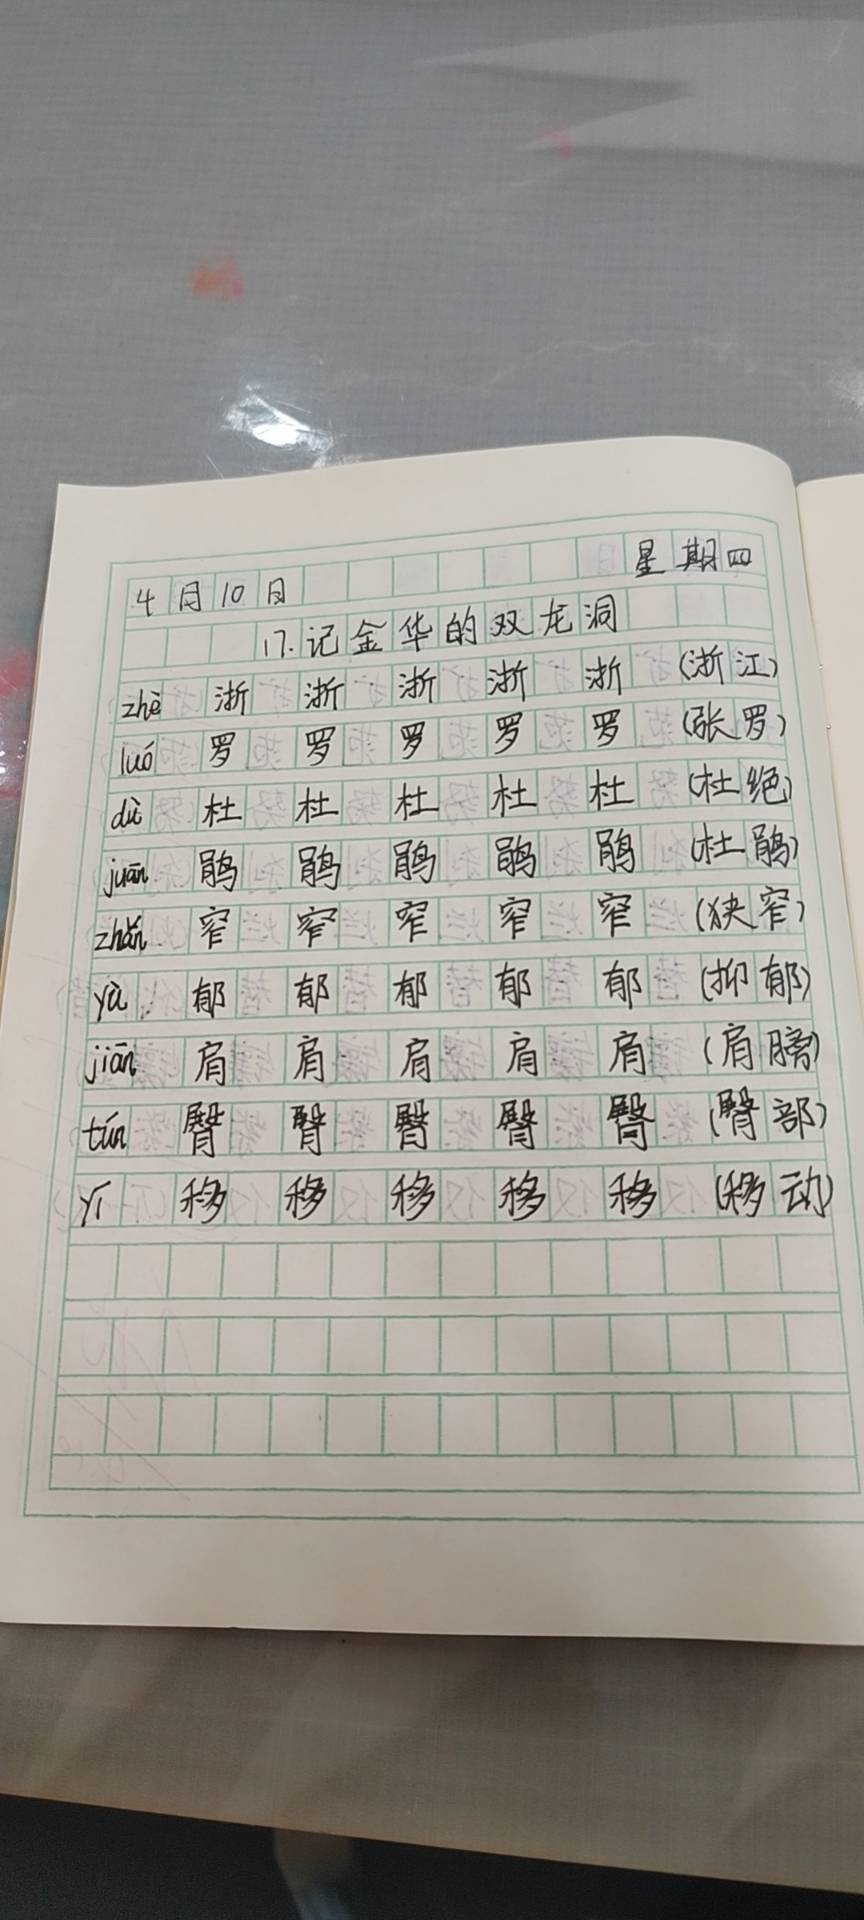 4月10日 星期四
17.记金华的双龙洞
zhè 浙 浙 浙 浙 浙 (浙江)
luó 罗 罗 罗 罗 罗 (张罗)
dù 杜 杜 杜 杜 杜 (杜绝)
juān 鹃 鹃 鹃 鹃 鹃 (杜鹃)
zhǎn 窄 窄 窄 窄 窄 (狭窄)
yù 郁 郁 郁 郁 郁 (抑郁)
jiān 肩 肩 肩 肩 肩 (肩膀)
tún 臀 臀 臀 臀 臀 (臀部)
yí 移 移 移 移 移 (移动)